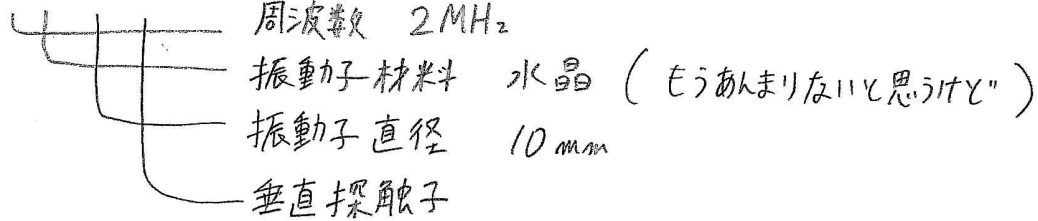 周波数 2MHz
振動子材料 水晶 (もうあんまりないと思うけど)
振動子直径 10mm
垂直探触子